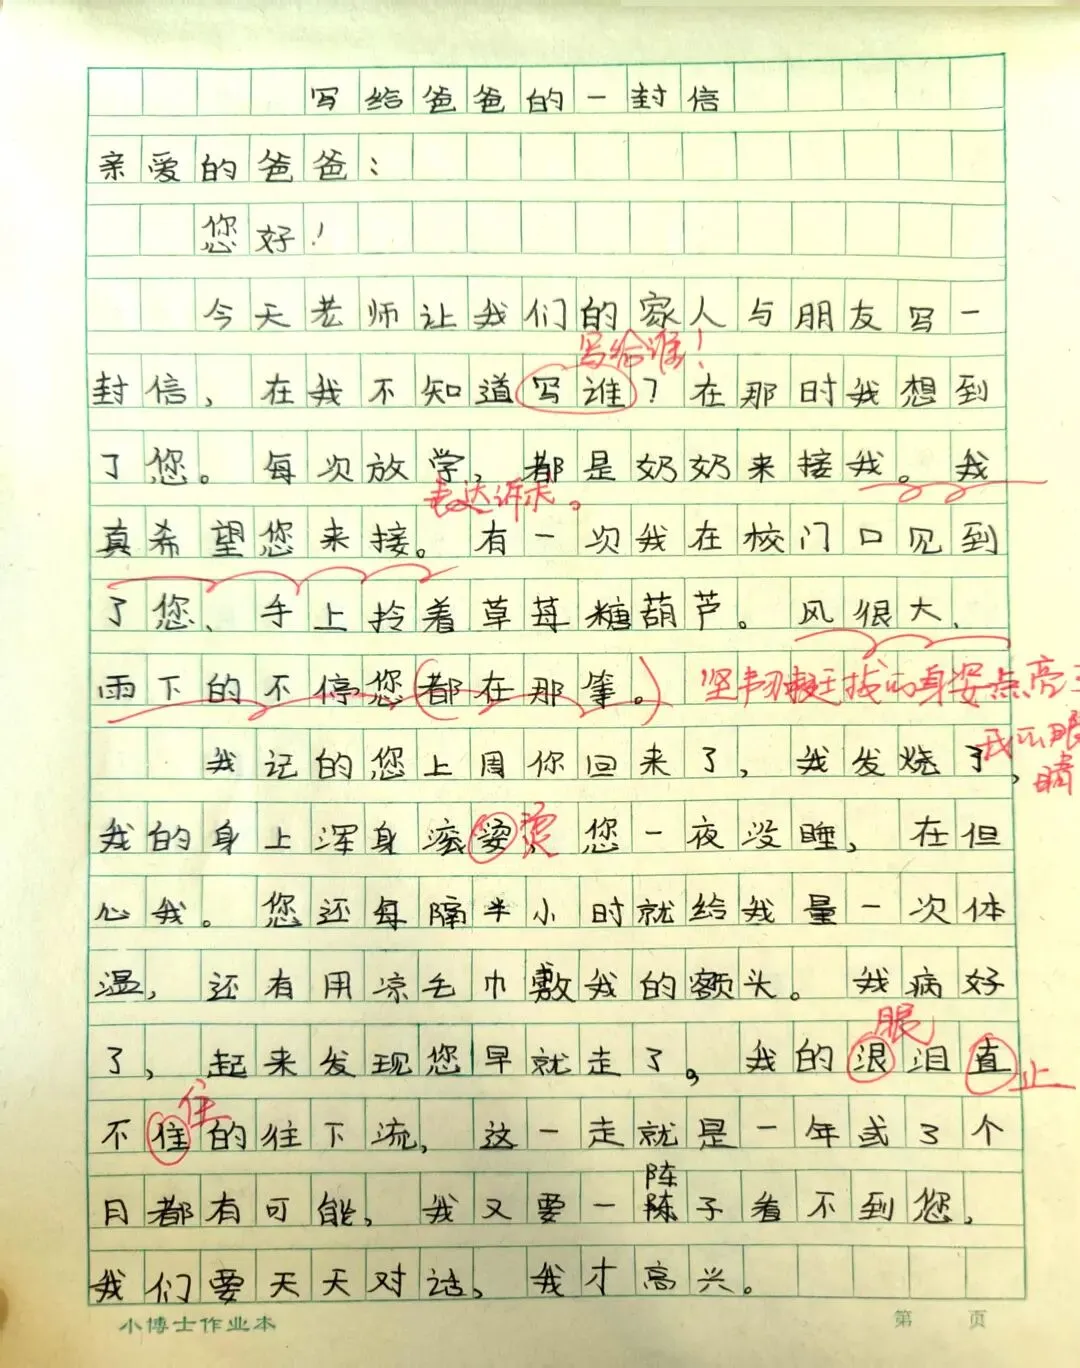 写给爸爸的一封信
亲爱的爸爸：
您好！
今天老师让我们的家人与朋友写一
写给谁！
封信，在我不知道写谁？在那时我想到
了您。每次放学，都是奶奶来接我。我
表达诉求。
真希望您来接。有一次我在校门口见到
了您、手上拎着草莓糖葫芦。风很大、
雨下的不停您都在那等。
坚韧挺拔的身姿点亮了
我的眼
睛
我记的您上周你回来了，我发烧了，
我的身上浑身滚 您一夜没睡，在但
烫
心我。您还每隔半小时就给我量一次体
温，还有用凉毛巾敷我的额头。我病好
眼
了，起来发现您早就走了。我的泪直
止
住
不住的往下流，这一走就是一年或3个
陈
月都有可能，我又要一陈子看不到您，
我们要天天对话，我才高兴。
小博士作业本
第 页